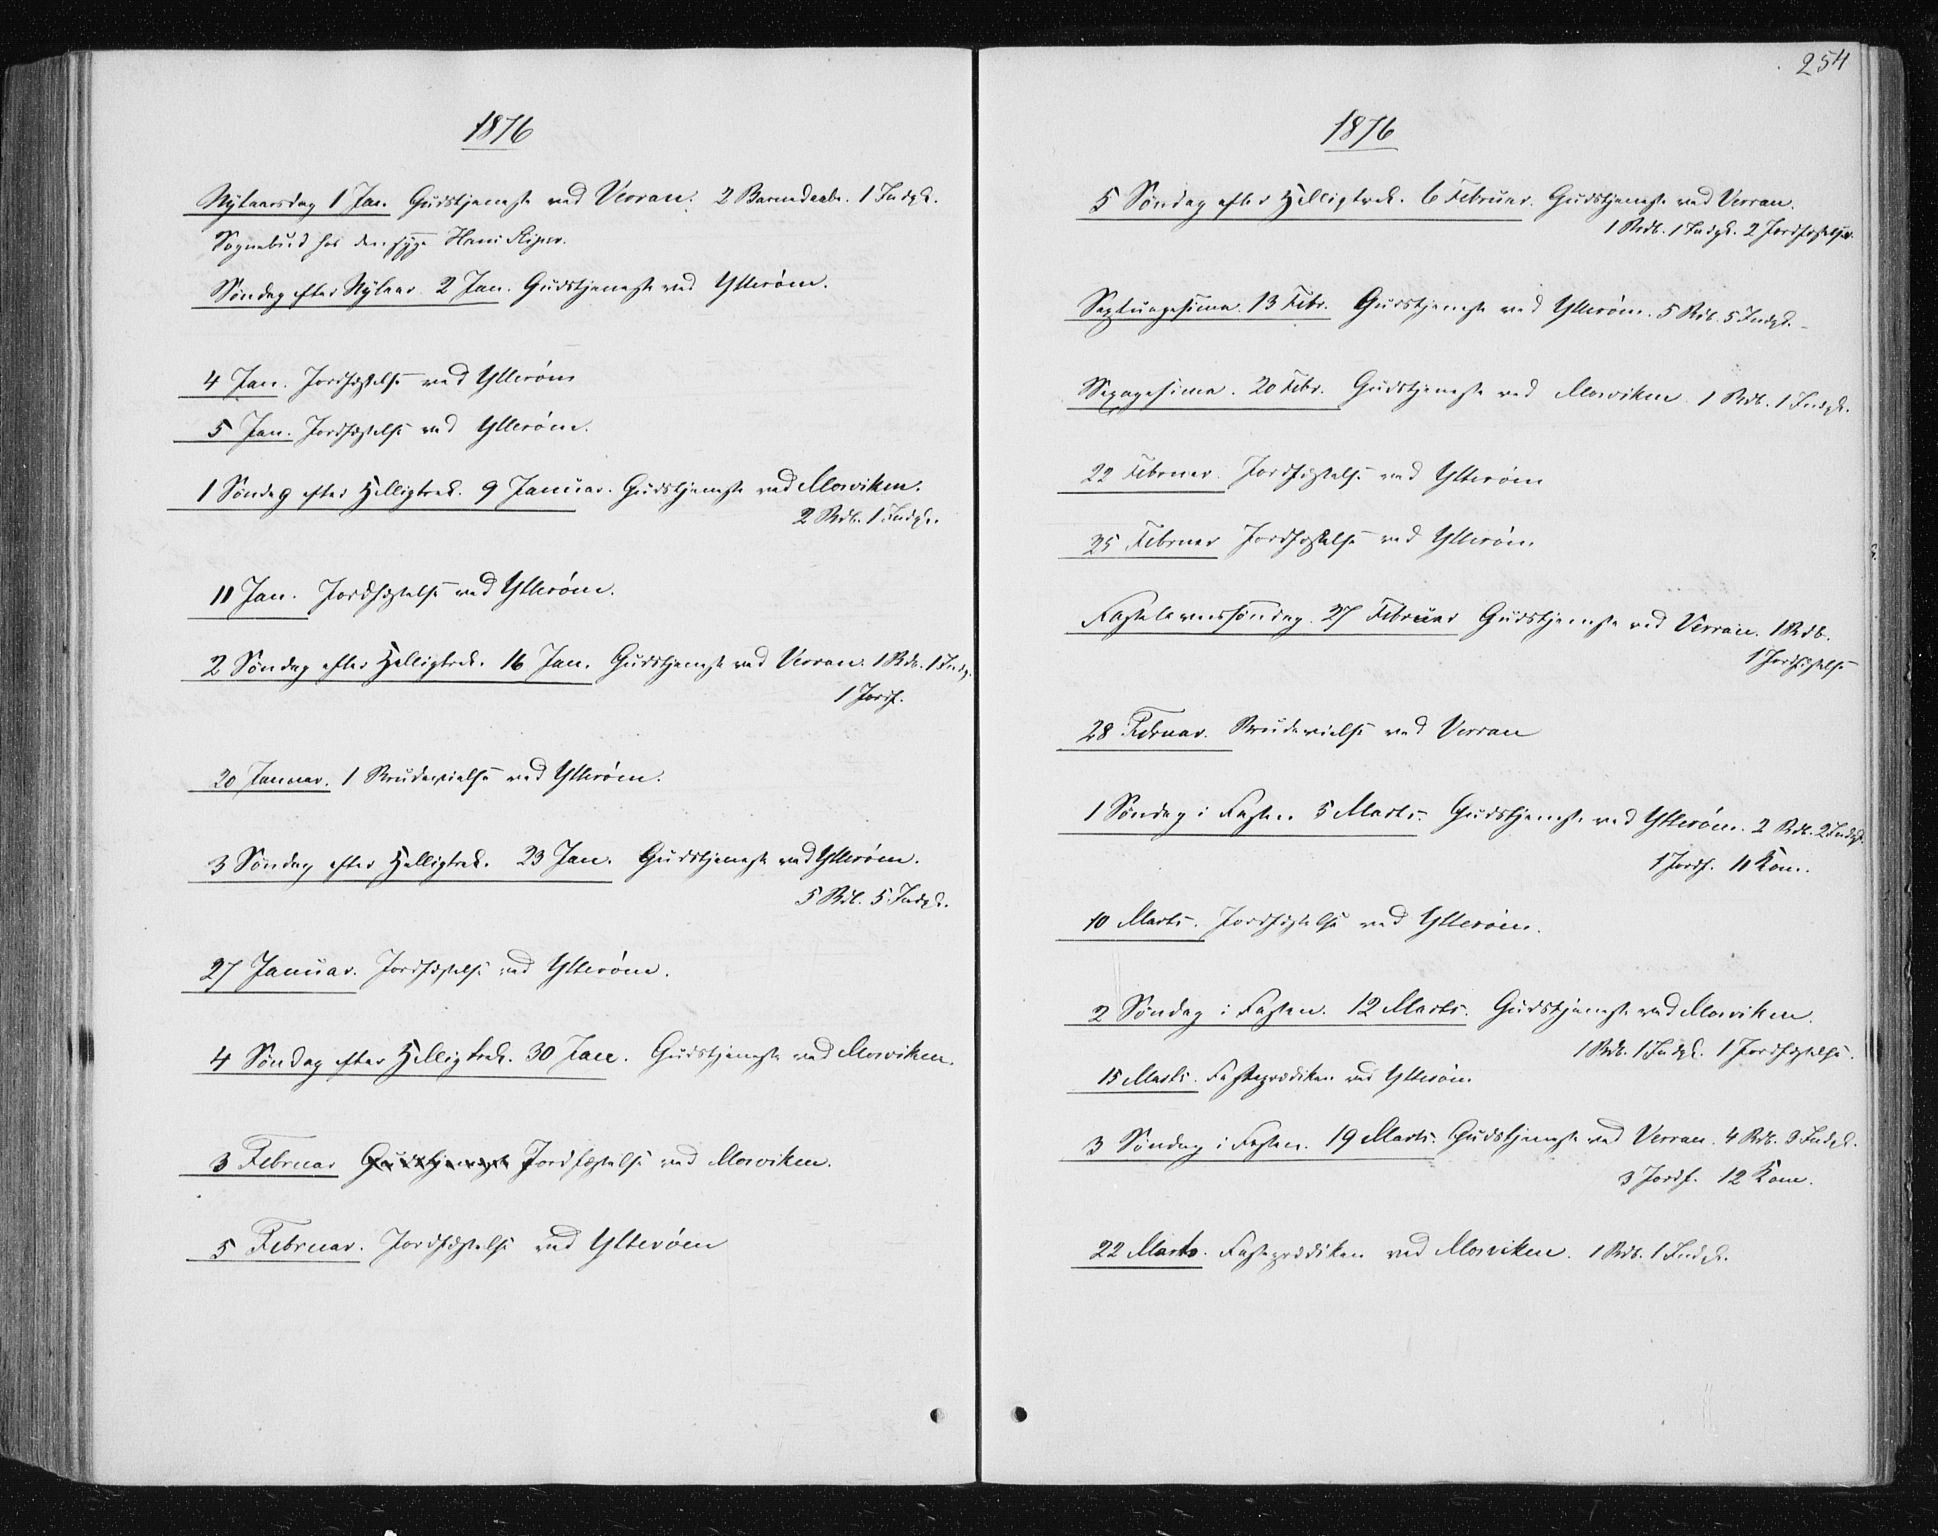 1876
Nytaarsdag 1 Jan. Gudstjeneste ved Verran. 2 Barnedaabe. 1 Indgk.
Sognebud hos den syge
Søndag efter Nytaar 2 Jan. Gudstjeneste ved Ytterøen.
4 Jan. Jordfæstelse ved Ytterøen
5 Jan. Jordfæstelse ved Ytterøen.
1 Søndag efter Helligtrek. 9 Januar. Gudstjeneste ved Mosviken.
2 Bdb. 1 Indgk.
11 Jan. Jordfæstelse ved Ytterøen.
2 Søndag efter Helligtrek. 16 Jan. Gudstjeneste ved Verran. 1 Bdb. 1 Indg.
1 Jordf.
20 Januar. 1 Brudevielse ved Ytterøen.
3 Søndag efter Helligtrek. 23 Jan. Gudstjeneste ved Ytterøen.
5 Bdb. 5 Indgk.
27 Januar. Jordfæstelse ved Ytterøen.
4 Søndag efter Helligtrek. 30 Jan. Gudstjeneste ved Mosviken.
3 Februar Gudstjeneste Jordfæstelse ved Mosviken.
5 Februar. Jordfæstelse ved Ytterøen
254
1876
5 Søndag efter Helligtrek. 6 Februar. Gudstjeneste ved Verran.
1 Bdb. 1 Indgk. 2 Jordfæstelser.
Septuagesima. 13 Febr. Gudstjeneste ved Ytterøen. 5 Bdb. 5 Indgk.
Sexagesima. 20 Febr. Gudstjeneste ved Mosviken 1 Bdb. 1 Indgk.
22 Februar. Jordfæstelse ved Ytterøen
25 Februar Jordfæstelse ved Ytterøen.
Fastelavnssøndag. 27 Februar Gudstjeneste ved Verran. 1 Bdb.
1 Jordfæstelse
28 Februar. Brudevielse ved Verran
1 Søndag i Fasten. 5 Marts. Gudstjeneste ved Ytterøen. 2 Bdb. 2 Indgk.
1 Jordf. 11 Kom.
10 Marts. Jordfæstelse ved Ytterøen.
2 Søndag i Fasten. 12 Marts. Gudstjeneste ved Mosviken.
1 Bdb. 1 Indgk. 1 Jordfæstelse.
15 Marts. Fasteprædiken ved Ytterøen
3 Søndag i Fasten. 19 Marts. Gudstjeneste ved Verran. 4 Bdb. 3 Indgk.
3 Jordf. 12 Kom.
22 Marts. Fasteprædiken ved Mosviken. 1 Bdb. 1 Indgk.